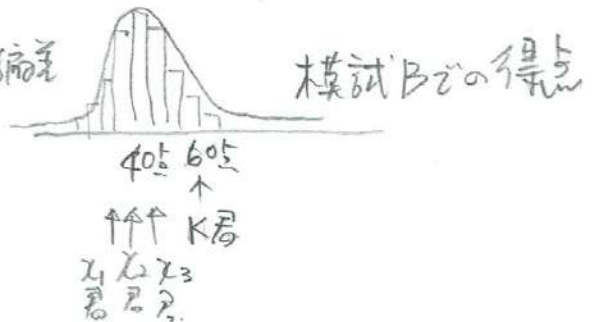 偏差
模試Bでの得点
40点 60点
↑
↑↑↑ K君
x₁ x₂ x₃
君 君 君